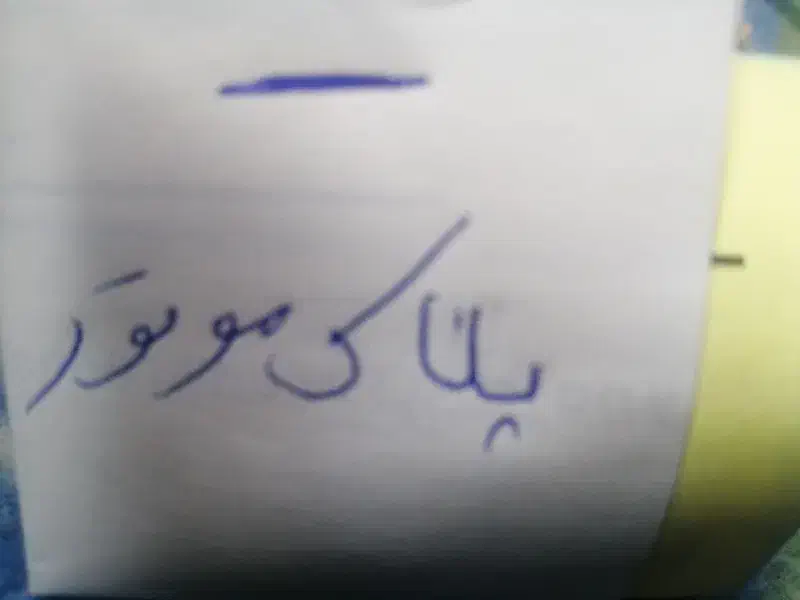 پلاک موتور